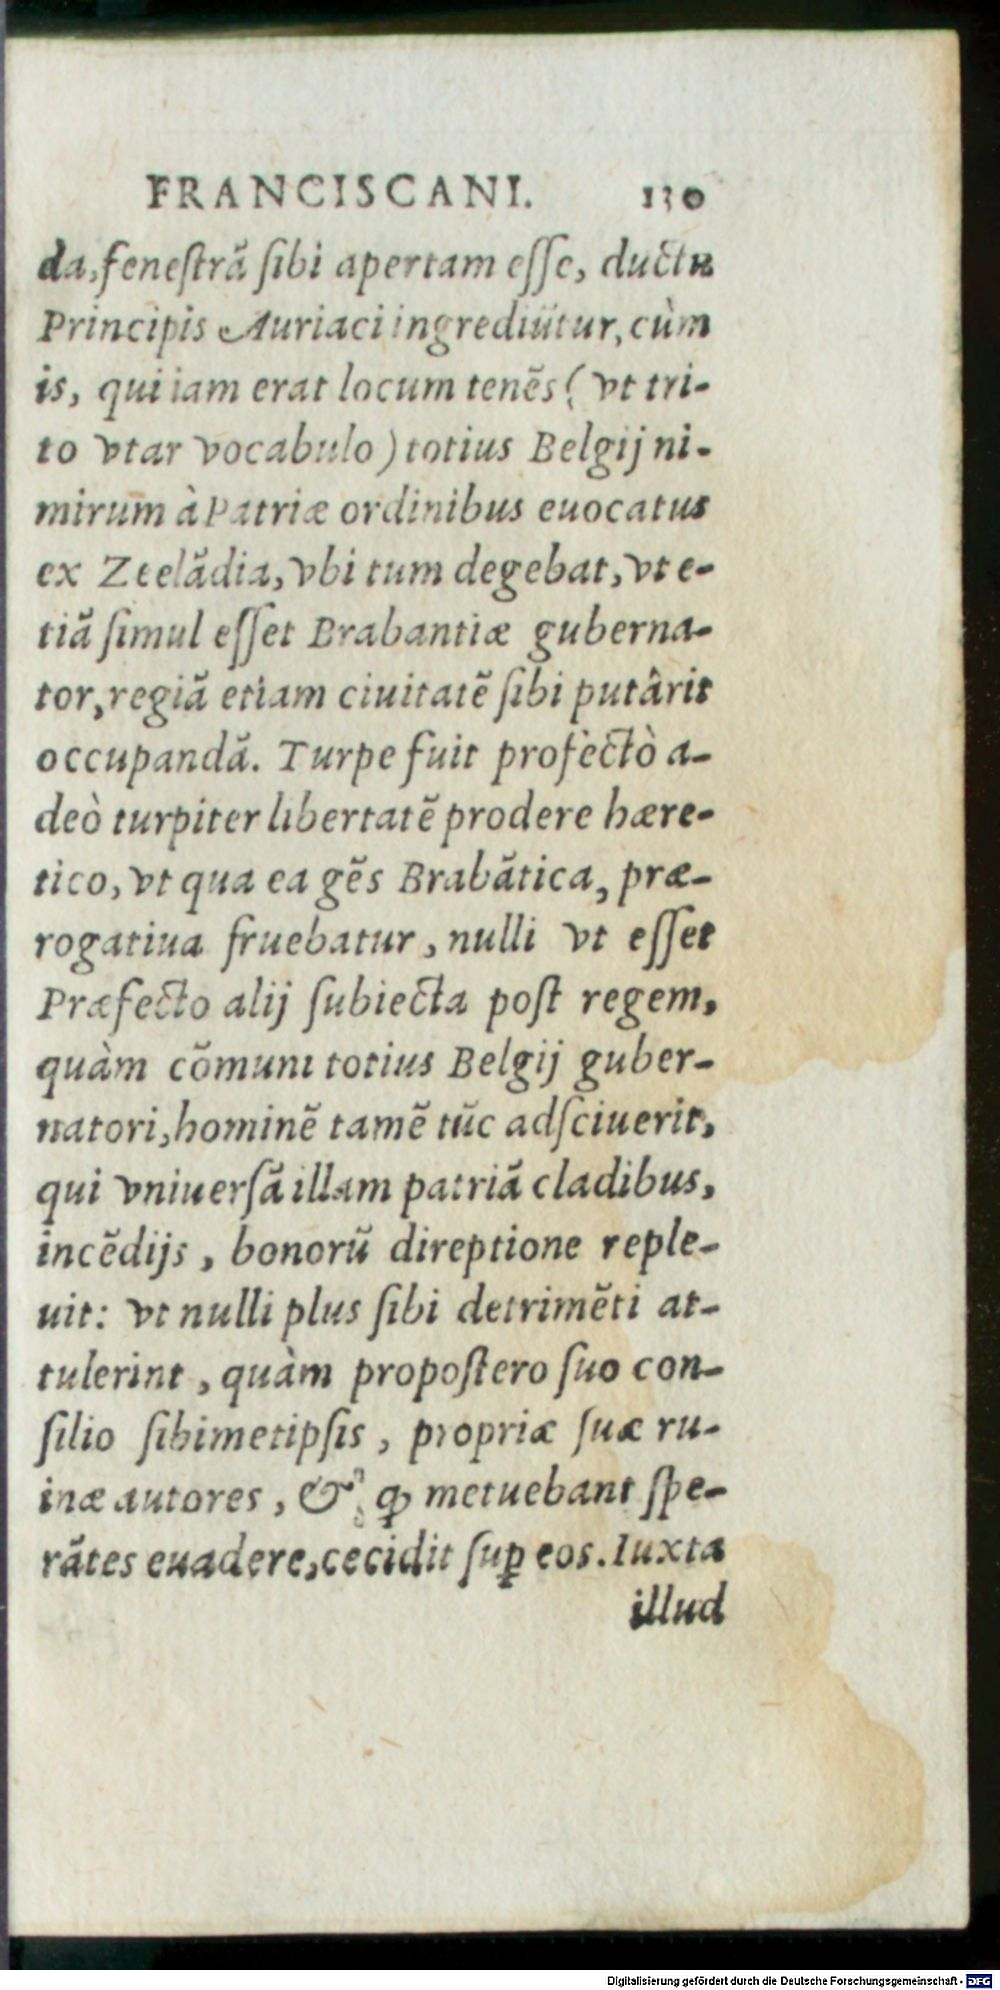 FRANCISCANI. 130
da, fenestrã sibi apertam esse, ductu
Principis Auriaci ingrediũtur, cùm
is, qui iam erat locum tenẽs (vt tri-
to vtar vocabulo) totius Belgij ni-
mirum à Patriæ ordinibus euocatus
ex Zeelãdia, vbi tum degebat, vt e-
tiã simul esset Brabantiæ guberna-
tor, regiã etiam ciuitatẽ sibi putârit
occupandã. Turpe fuit profectò a-
deò turpiter libertatẽ prodere hære-
tico, vt qua ea gẽs Brabãtica, præ-
rogatiua fruebatur, nulli vt esset
Præfecto alij subiecta post regem,
quàm cõmuni totius Belgij guber-
natori, hominẽ tamẽ tũc adsciuerit,
qui vniuersã illam patriã cladibus,
incẽdijs, bonorũ direptione reple-
uit: vt nulli plus sibi detrimẽti at-
tulerint, quàm propostero suo con-
silio sibimetipsis, propriæ suæ ru-
inæ autores, & ꝙ metuebant spe-
rãtes euadere, cecidit suꝑ eos. Iuxta
illud
Digitalisierung gefördert durch die Deutsche Forschungsgemeinschaft - DFG